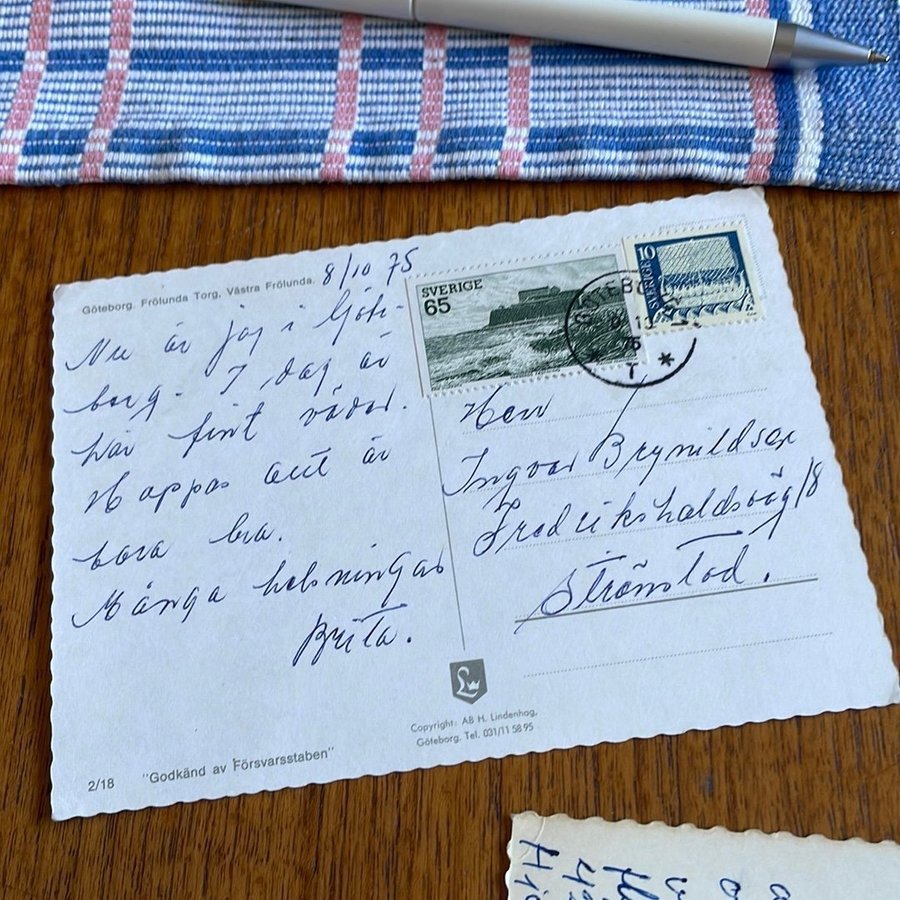 Göteborg. Frölunda Torg, Västra Frölunda.
8/10 75
Nu är jag i Göte-
borg. I dag är
här fint väder.
Hoppas allt är
bara bra.
Många hälsningar
Brita.
SVERIGE
65
10
SVERIGE
GÖTEBORG
8 10
75
T
Herr
Ingvar Brynildsen
Fredrikshaldsväg 18
Strömstad.
Copyright: AB H. Lindenhag,
Göteborg. Tel. 031/11 58 95
2/18 "Godkänd av Försvarsstaben"